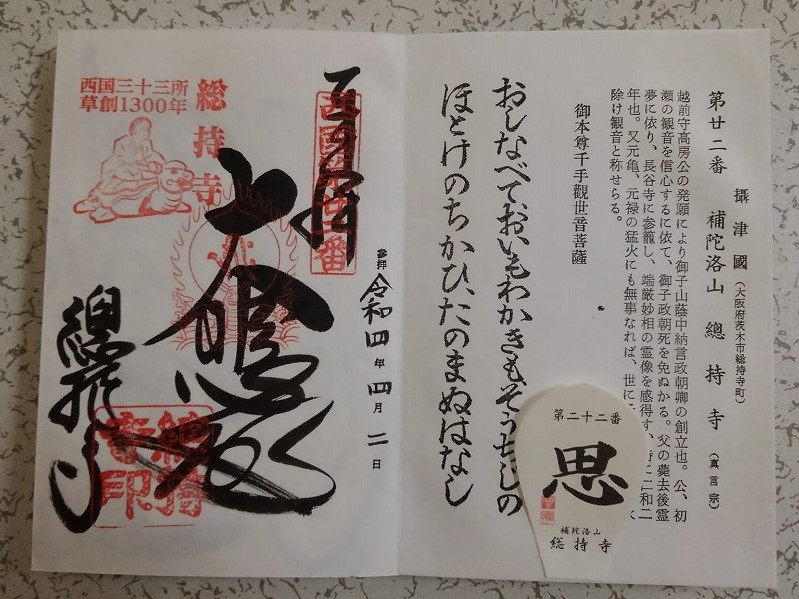 第廿二番 攝津國(大阪府茨木市総持寺町)
補陀洛山 總持寺 (真言宗)
越前守高房公の発願により御子山蔭中納言政朝卿の創立也。公、初
瀬の観音を信心するに依て、御子政朝死を免ぬかる。父の薨去後霊
夢に依り、長谷寺に参籠し、端厳妙相の霊像を感得す、時に仁和二
年也。又元亀、元禄の猛火にも無事なれば、世に
除け観音と称せらる。
御本尊千手觀世音菩薩
おしなべておいもわかきもそうぢじの
ほとけのちかひ、たのまぬはなし
第二十二番
思
補陀洛山
総持寺
参拝 令和四年四月二日
西国第廿二番
大悲殿
總持寺
総持寺
西国三十三所
草創1300年
総持
寺印